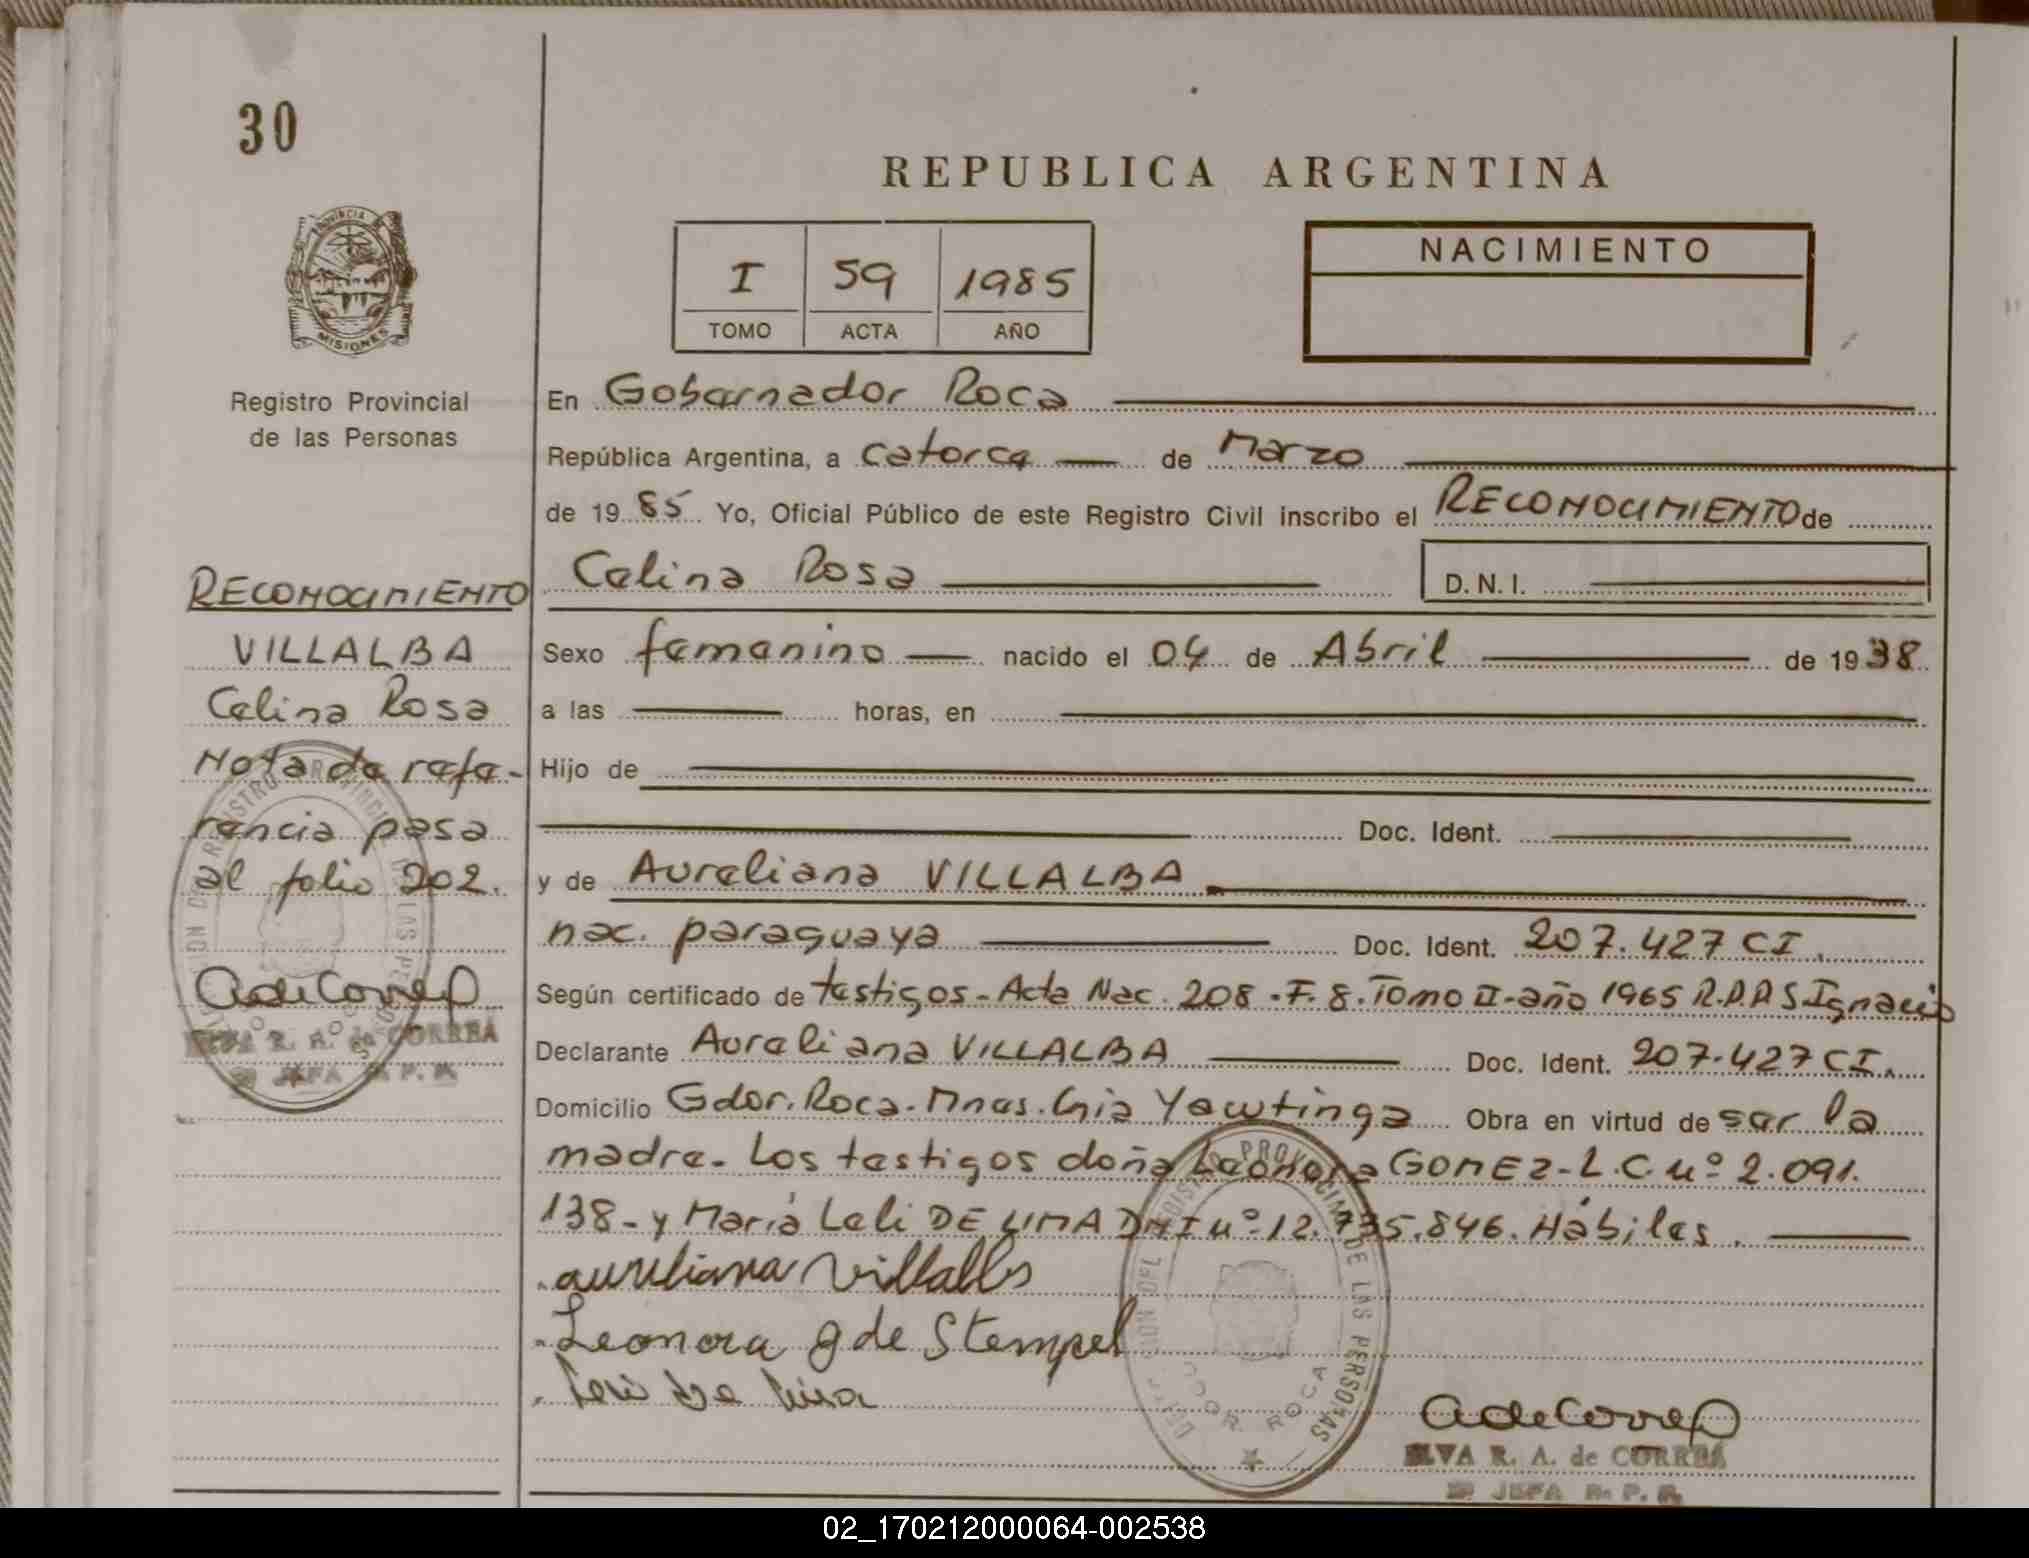 30
REPUBLICA ARGENTINA
PROVINCIA
MISIONES
Registro Provincial
de las Personas
I 59 1985
TOMO ACTA AÑO
NACIMIENTO
En Gobernador Roca
República Argentina, a catorce de Marzo
de 1985 Yo, Oficial Público de este Registro Civil inscribo el RECONOCIMIENTO de
Celina Rosa D.N.I.
Sexo femenino nacido el 04 de Abril de 1938
a las horas, en
Hijo de
Doc. Ident.
y de Aureliana VILLALBA
nac. paraguaya Doc. Ident. 207.427 CI.
Según certificado de testigos - Acta Nac. 208 - F. 8. Tomo II - año 1965 R.P.P S Ignacio
Declarante Aureliana VILLALBA Doc. Ident. 207.427 CI.
Domicilio Gdor. Roca. Mnes. Obra en virtud de ser la
madre. Los testigos doña Leonora GOMEZ - L.C nº 2.091.
138 - y María Leli DE LIMA DNI nº 12.735.846. Hábiles.
Aureliana Villalba
Leonora g de Stempel
Leli de Lima
RECONOCIMIENTO
VILLALBA
Celina Rosa
Nota de refe-
rencia pasa
al folio 202.
ELVA R. A. de CORREA
JEFA R. P. P.
REGISTRO PROVINCIAL DE LAS PERSONAS
GDOR. ROCA
ELVA R. A. de CORREA
JEFA R. P. P.
02_170212000064-002538